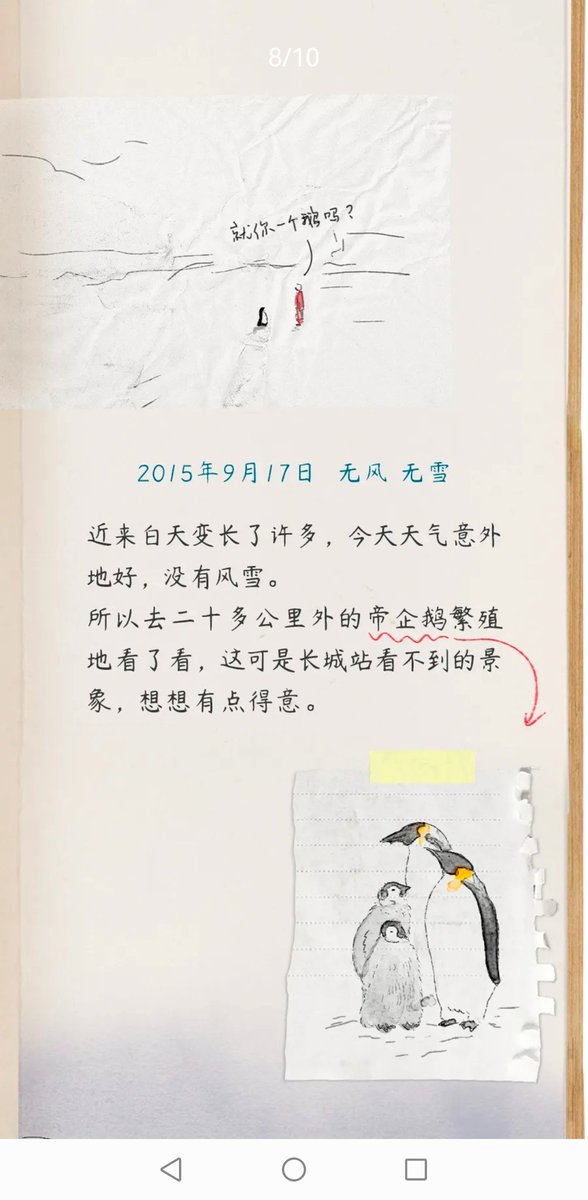 8/10
就你一个鹅吗？
2015年9月17日 无风 无雪
近来白天变长了许多，今天天气意外
地好，没有风雪。
所以去二十多公里外的帝企鹅繁殖
地看了看，这可是长城站看不到的景
象，想想有点得意。